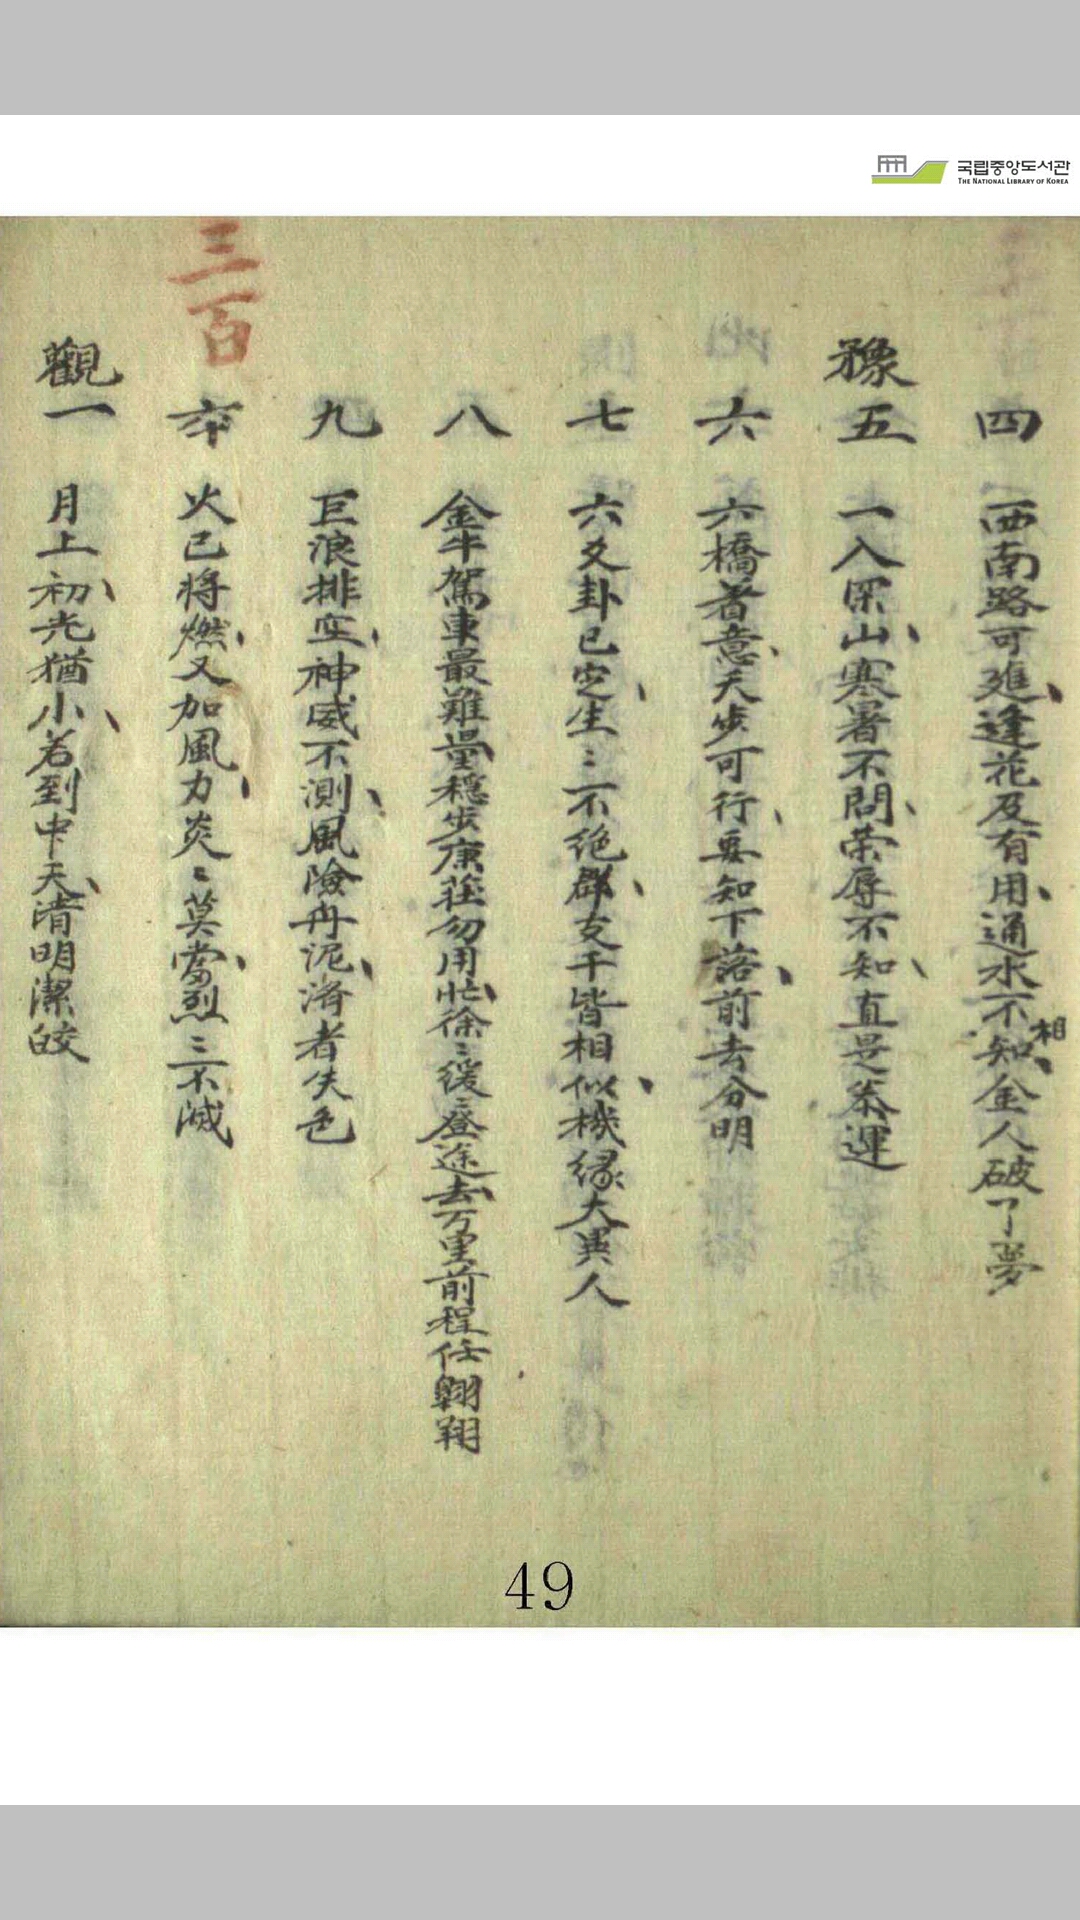 국립중앙도서관
THE NATIONAL LIBRARY OF KOREA
四 西南路可進、逢花及有用、通水不相知、金人破了夢
豫五 一入深山、寒暑不問、荣辱不知、直是泰運
六 六橋着意、天步可行、要知下落、前去分明
七 六爻卦已定、生〻不絶群、支干皆相似、機縁大異人
八 金牛駕車最難量穏步康莊勿用忙、徐〻緩〻登途去、万里前程任翺翔
九 巨浪排空、神威不測、風險舟泥、濟者失色
三百
卒 火已將燃、又加風力、炎〻莫當、烈〻不滅
觀一 月上初、光猶小、若到中天、清明潔皎
49